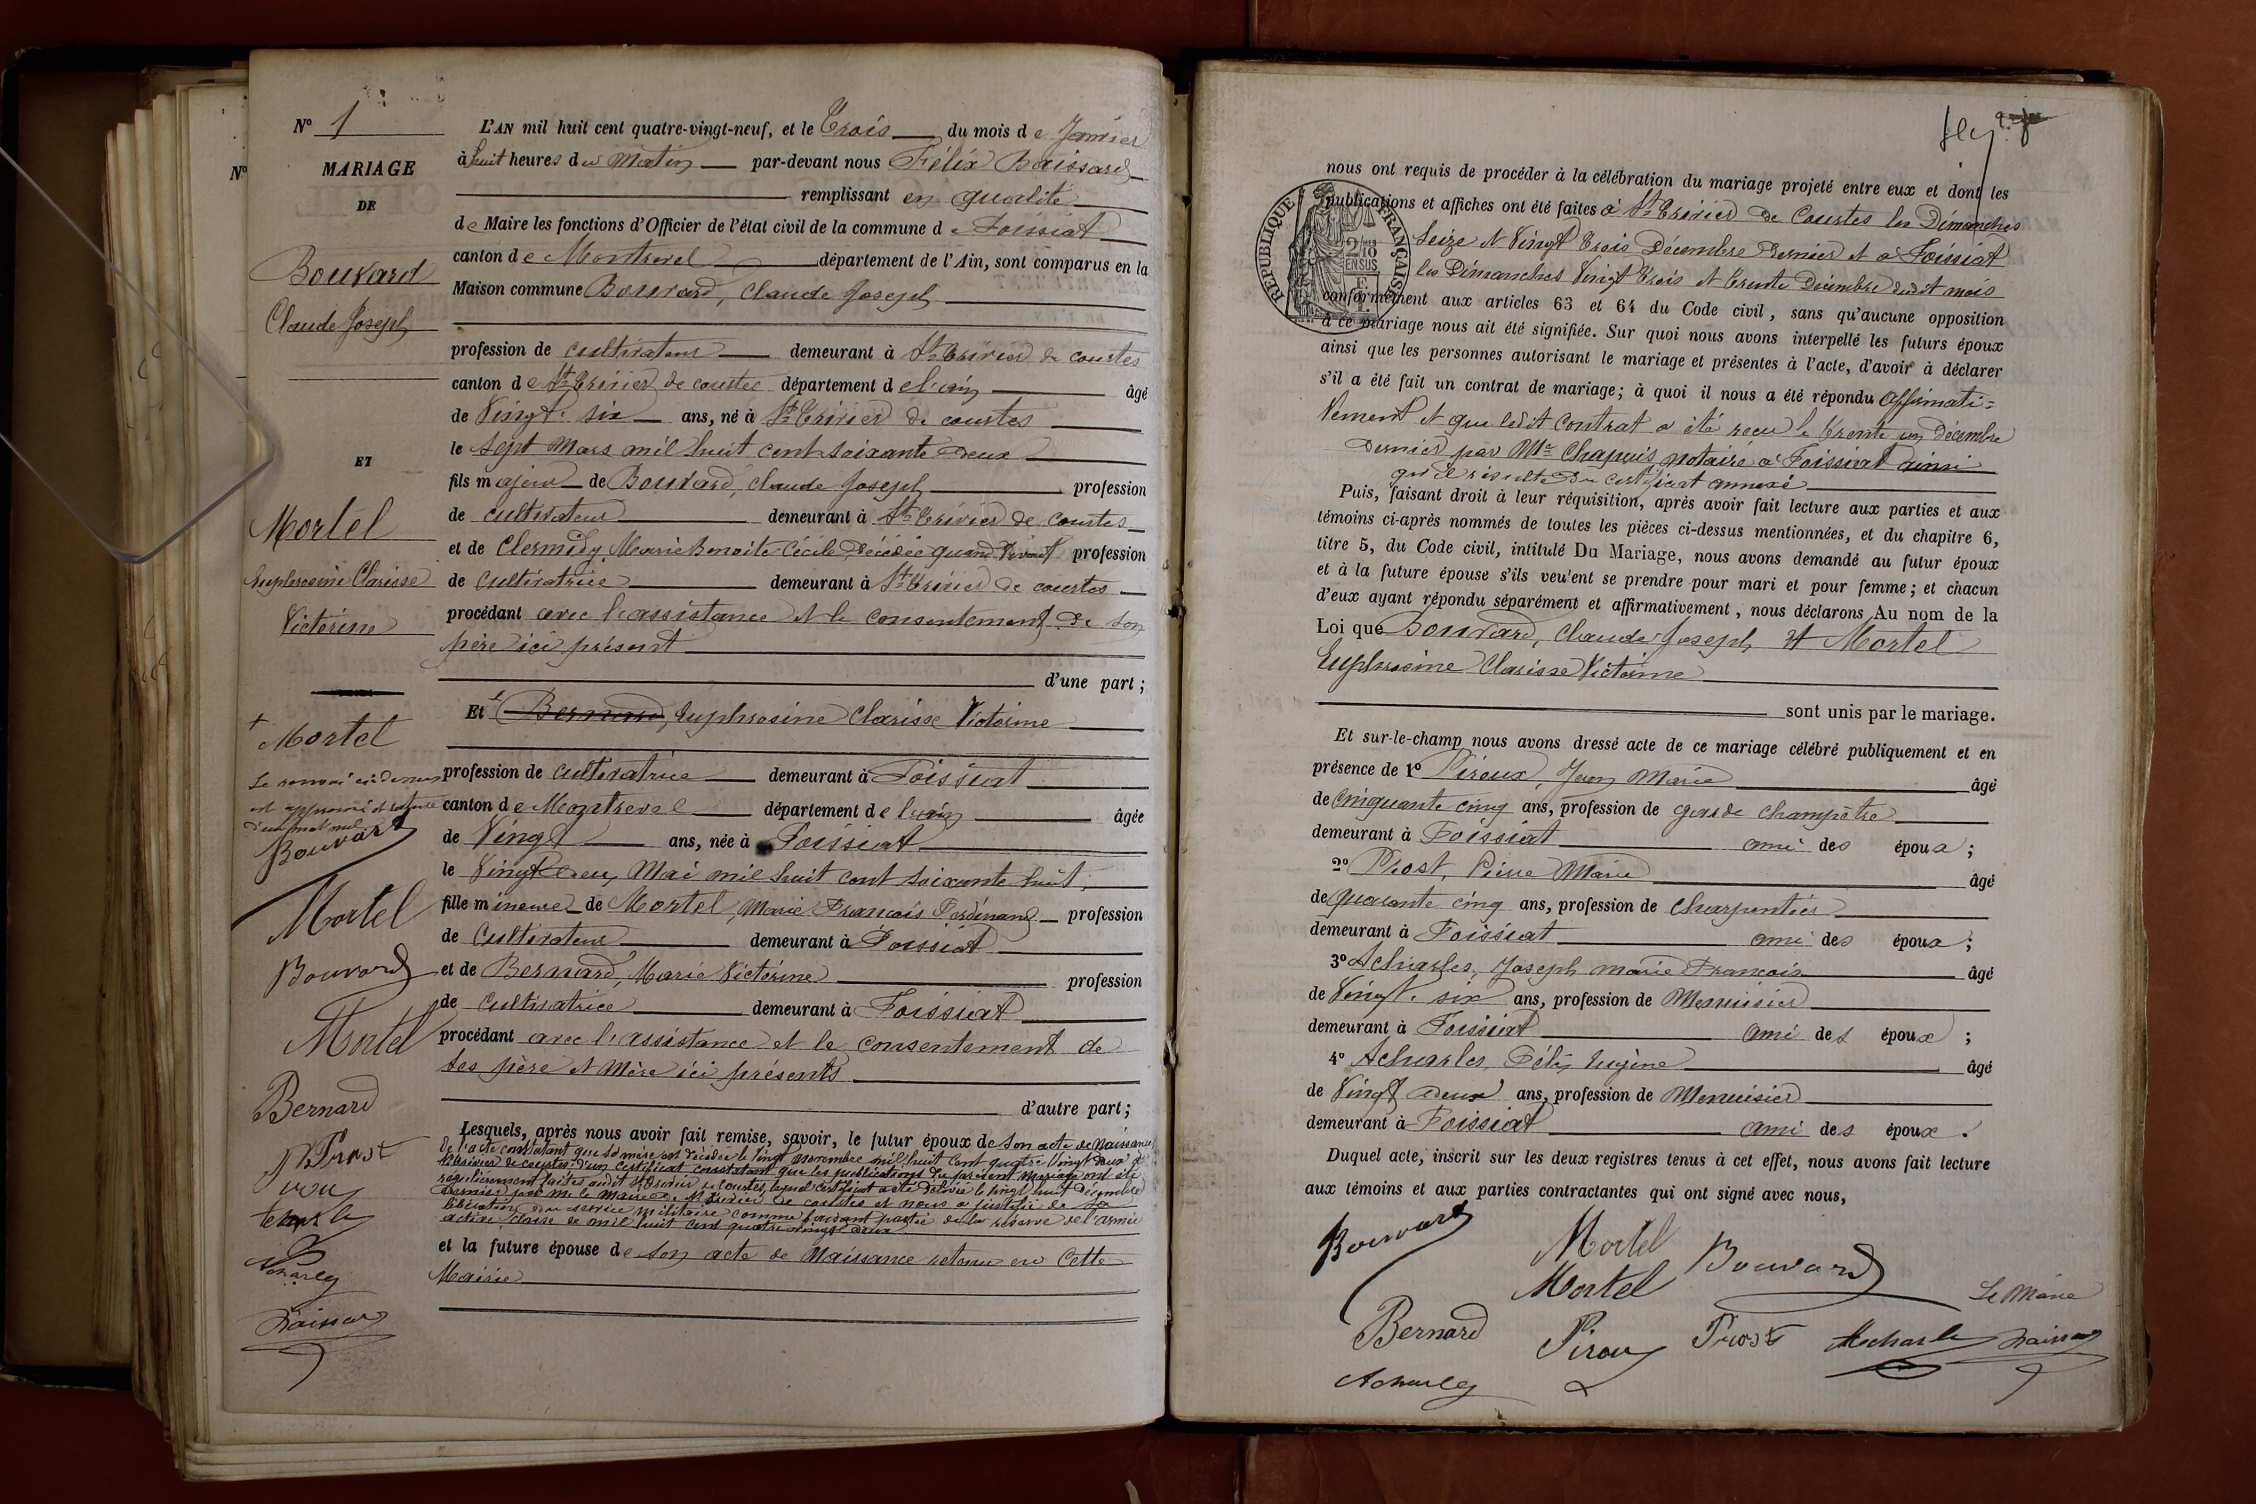 N° 1
N°
MARIAGE
DE
Bouvard
Claude Joseph
ET
Mortel
Euphrosine Clarisse
Victorine
+ Mortel
Le renvoi ci-dessus
est approuvé et rature
d'un mot nul
Bouvard
Mortel
Bouvard
Mortel
Bernard
Prost
L'AN mil huit cent quatre-vingt-neuf, et le Trois du mois de Janvier
à huit heures du Matin par-devant nous Félix Baissard
remplissant en qualité
de Maire les fonctions d'Officier de l'état civil de la commune de Foissiat
canton de Montrevel département de l'Ain, sont comparus en la
Maison commune Bouvard, Claude Joseph
profession de cultivateur demeurant à St Trivier de courtes
canton de St Trivier de courtes département de l'ain âgé
de Vingt-six ans, né à St Trivier de courtes
le sept Mars mil huit cent soixante deux
fils majeur de Bouvard, Claude Joseph profession
de cultivateur demeurant à St Trivier de courtes
et de Clermidy, Marie Benoite Cécile, décédée quand vivait profession
de cultivatrice demeurant à St Trivier de courtes
procédant avec l'assistance et le consentement de son
père ici présent
d'une part ;
Et + Bernard, Euphrosine Clarisse Victorine
profession de cultivatrice demeurant à Foissiat
canton de Montrevel département de l'ain âgée
de Vingt ans, née à Foissiat
le Vingt deux Mai mil huit cent soixante huit,
fille mineure de Mortel, Marie François Ferdinand profession
de Cultivateur demeurant à Foissiat
et de Bernard, Marie Victorine profession
de cultivatrice demeurant à Foissiat
procédant avec l'assistance et le consentement de
ses père et mère ici présents
d'autre part ;
Lesquels, après nous avoir fait remise, savoir, le futur époux de son acte de Naissance
de l'acte constatant que sa mère est décédée le vingt novembre mil huit cent quatre vingt deux à
St Trivier de courtes d'un certificat constatant que les publications du présent Mariage ont été
régulièrement faites audit St Trivier de Courtes, lequel certificat a été délivré le vingt huit Décembre
dernier par Mr le Maire de St Trivier de courtes et nous a justifié de sa
libération du service militaire comme faisant partie de la réserve de l'armée
active, classe de mil huit cent quatre vingt deux
et la future épouse de son acte de Naissance retenu en Cette
Mairie
nous ont requis de procéder à la célébration du mariage projeté entre eux et dont les
publications et affiches ont été faites à St Trivier de Courtes les Dimanches
Seize et Vingt Trois Décembre dernier et à Foissiat
les Dimanches Vingt Trois et Trente Décembre dudit mois
conformément aux articles 63 et 64 du Code civil, sans qu'aucune opposition
à ce mariage nous ait été signifiée. Sur quoi nous avons interpellé les futurs époux
ainsi que les personnes autorisant le mariage et présentes à l'acte, d'avoir à déclarer
s'il a été fait un contrat de mariage ; à quoi il nous a été répondu affirmati=
vement et que ledit contrat a été reçu le trente un Décembre
dernier par Me Chapuis notaire à Foissiat ainsi
qu'il résulte du certificat annexé
Puis, faisant droit à leur réquisition, après avoir fait lecture aux parties et aux
témoins ci-après nommés de toutes les pièces ci-dessus mentionnées, et du chapitre 6,
titre 5, du Code civil, intitulé Du Mariage, nous avons demandé au futur époux
et à la future épouse s'ils veulent se prendre pour mari et pour femme ; et chacun
d'eux ayant répondu séparément et affirmativement, nous déclarons Au nom de la
Loi que Bouvard, Claude Joseph et Mortel
Euphrosine Clarisse Victorine
sont unis par le mariage.
Et sur-le-champ nous avons dressé acte de ce mariage célébré publiquement et en
présence de 1° Piroux, Jean Marie âgé
de cinquante cinq ans, profession de garde champêtre
demeurant à Foissiat ami des époux ;
2° Prost, Pierre Marie âgé
de quarante cinq ans, profession de charpentier
demeurant à Foissiat ami des époux ;
3° Acharles, Joseph marie François âgé
de Vingt-six ans, profession de Menuisier
demeurant à Foissiat ami des époux ;
4° Acharles, Félix Eugène âgé
de Vingt deux ans, profession de Menuisier
demeurant à Foissiat ami des époux.
Duquel acte, inscrit sur les deux registres tenus à cet effet, nous avons fait lecture
aux témoins et aux parties contractantes qui ont signé avec nous,
Bouvard Mortel Bouvard
Mortel Le Maire
Bernard Pirou Prost Acharle
RÉPUBLIQUE FRANÇAISE